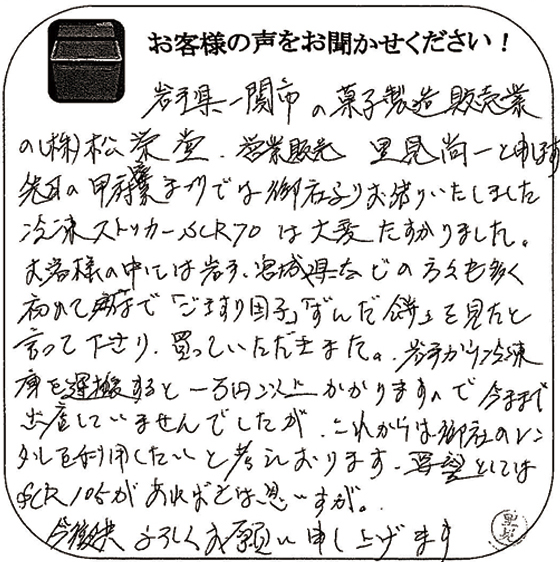 お客様の声をお聞かせください！
岩手県一関市の菓子製造販売業
の(株)松栄堂、営業販売 里見尚一と申します
先日の甲府まつりでは御社よりお借りいたしました
冷凍ストッカーSCR70は大変たすかりました。
お客様の中には岩手、宮城県などの方々も多く
初めて甲府で「ごますり団子」「ずんだ餅」を見たと
言って下さり、買っていただきました。岩手から冷凍
庫を運搬すると一万円以上かかりますので今まで
出店していませんでしたが、これからは御社のレン
タルを利用したいと考えております。要望としては
SCR105があればとは思いますが。
今後共よろしくお願い申し上げます
里見